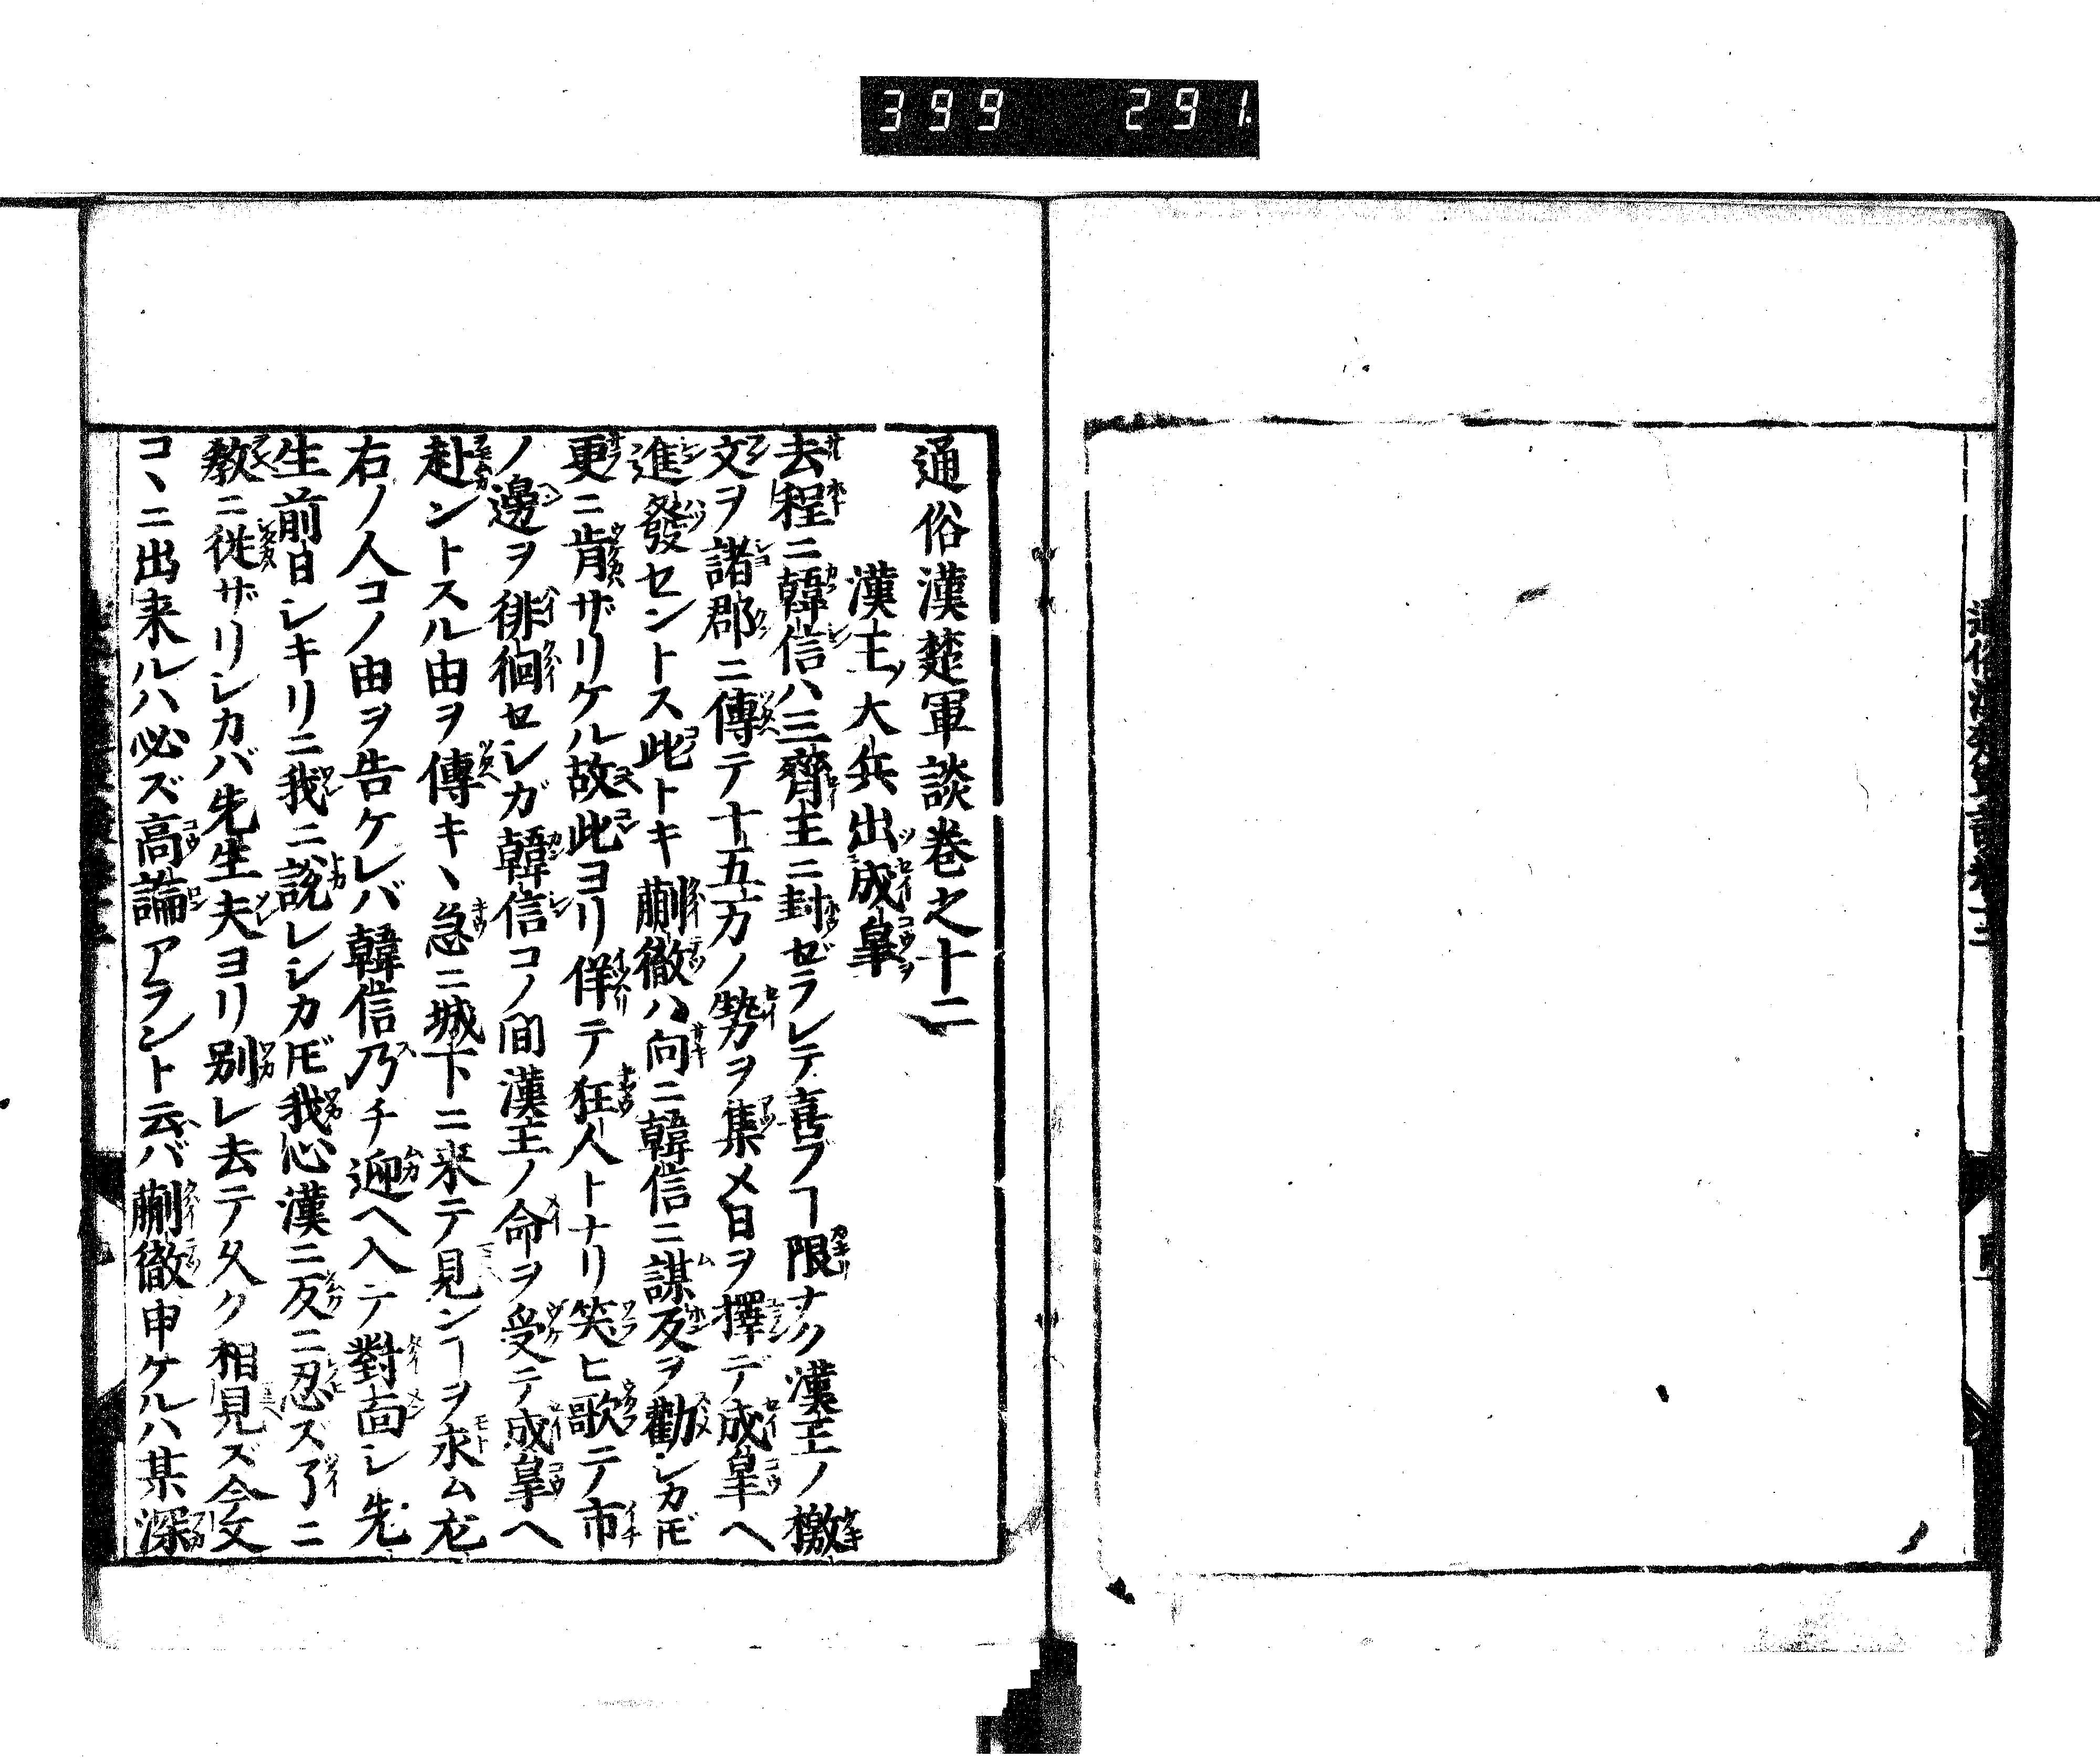 399 291.
通俗漢楚軍談巻之十二
漢王ノ大兵出成皐
去程ニ韓信ハ三齊王ニ封ゼラレテ喜フヿ限ナク漢王ノ檄
文ヲ諸郡ニ傳テ十五万ノ勢ヲ集メ日ヲ擇デ成皐ヘ
進發セントス此トキ蒯徹ハ向ニ韓信ニ謀反ヲ勸シカ𪜈
更ニ肯ザリケル故此ヨリ佯テ狂人トナリ笑ヒ歌テ市
ノ邊ヲ徘徊セシガ韓信コノ間漢王ノ命ヲ受テ成皐ヘ
赴ントスル由ヲ傳キヽ急ニ城下ニ来テ見ンヿヲ求ム左
右ノ人コノ由ヲ告ケレバ韓信乃チ迎ヘ入テ對面シ先
生前日シキリニ我ニ説レシカ𪜈我心漢ニ反ニ忍ズ了ニ
教ニ從ザリシカバ先生夫ヨリ別レ去テ久ク相見ズ今又
コヽニ出来ルハ必ズ高論アラント云バ蒯徹申ケルハ某深